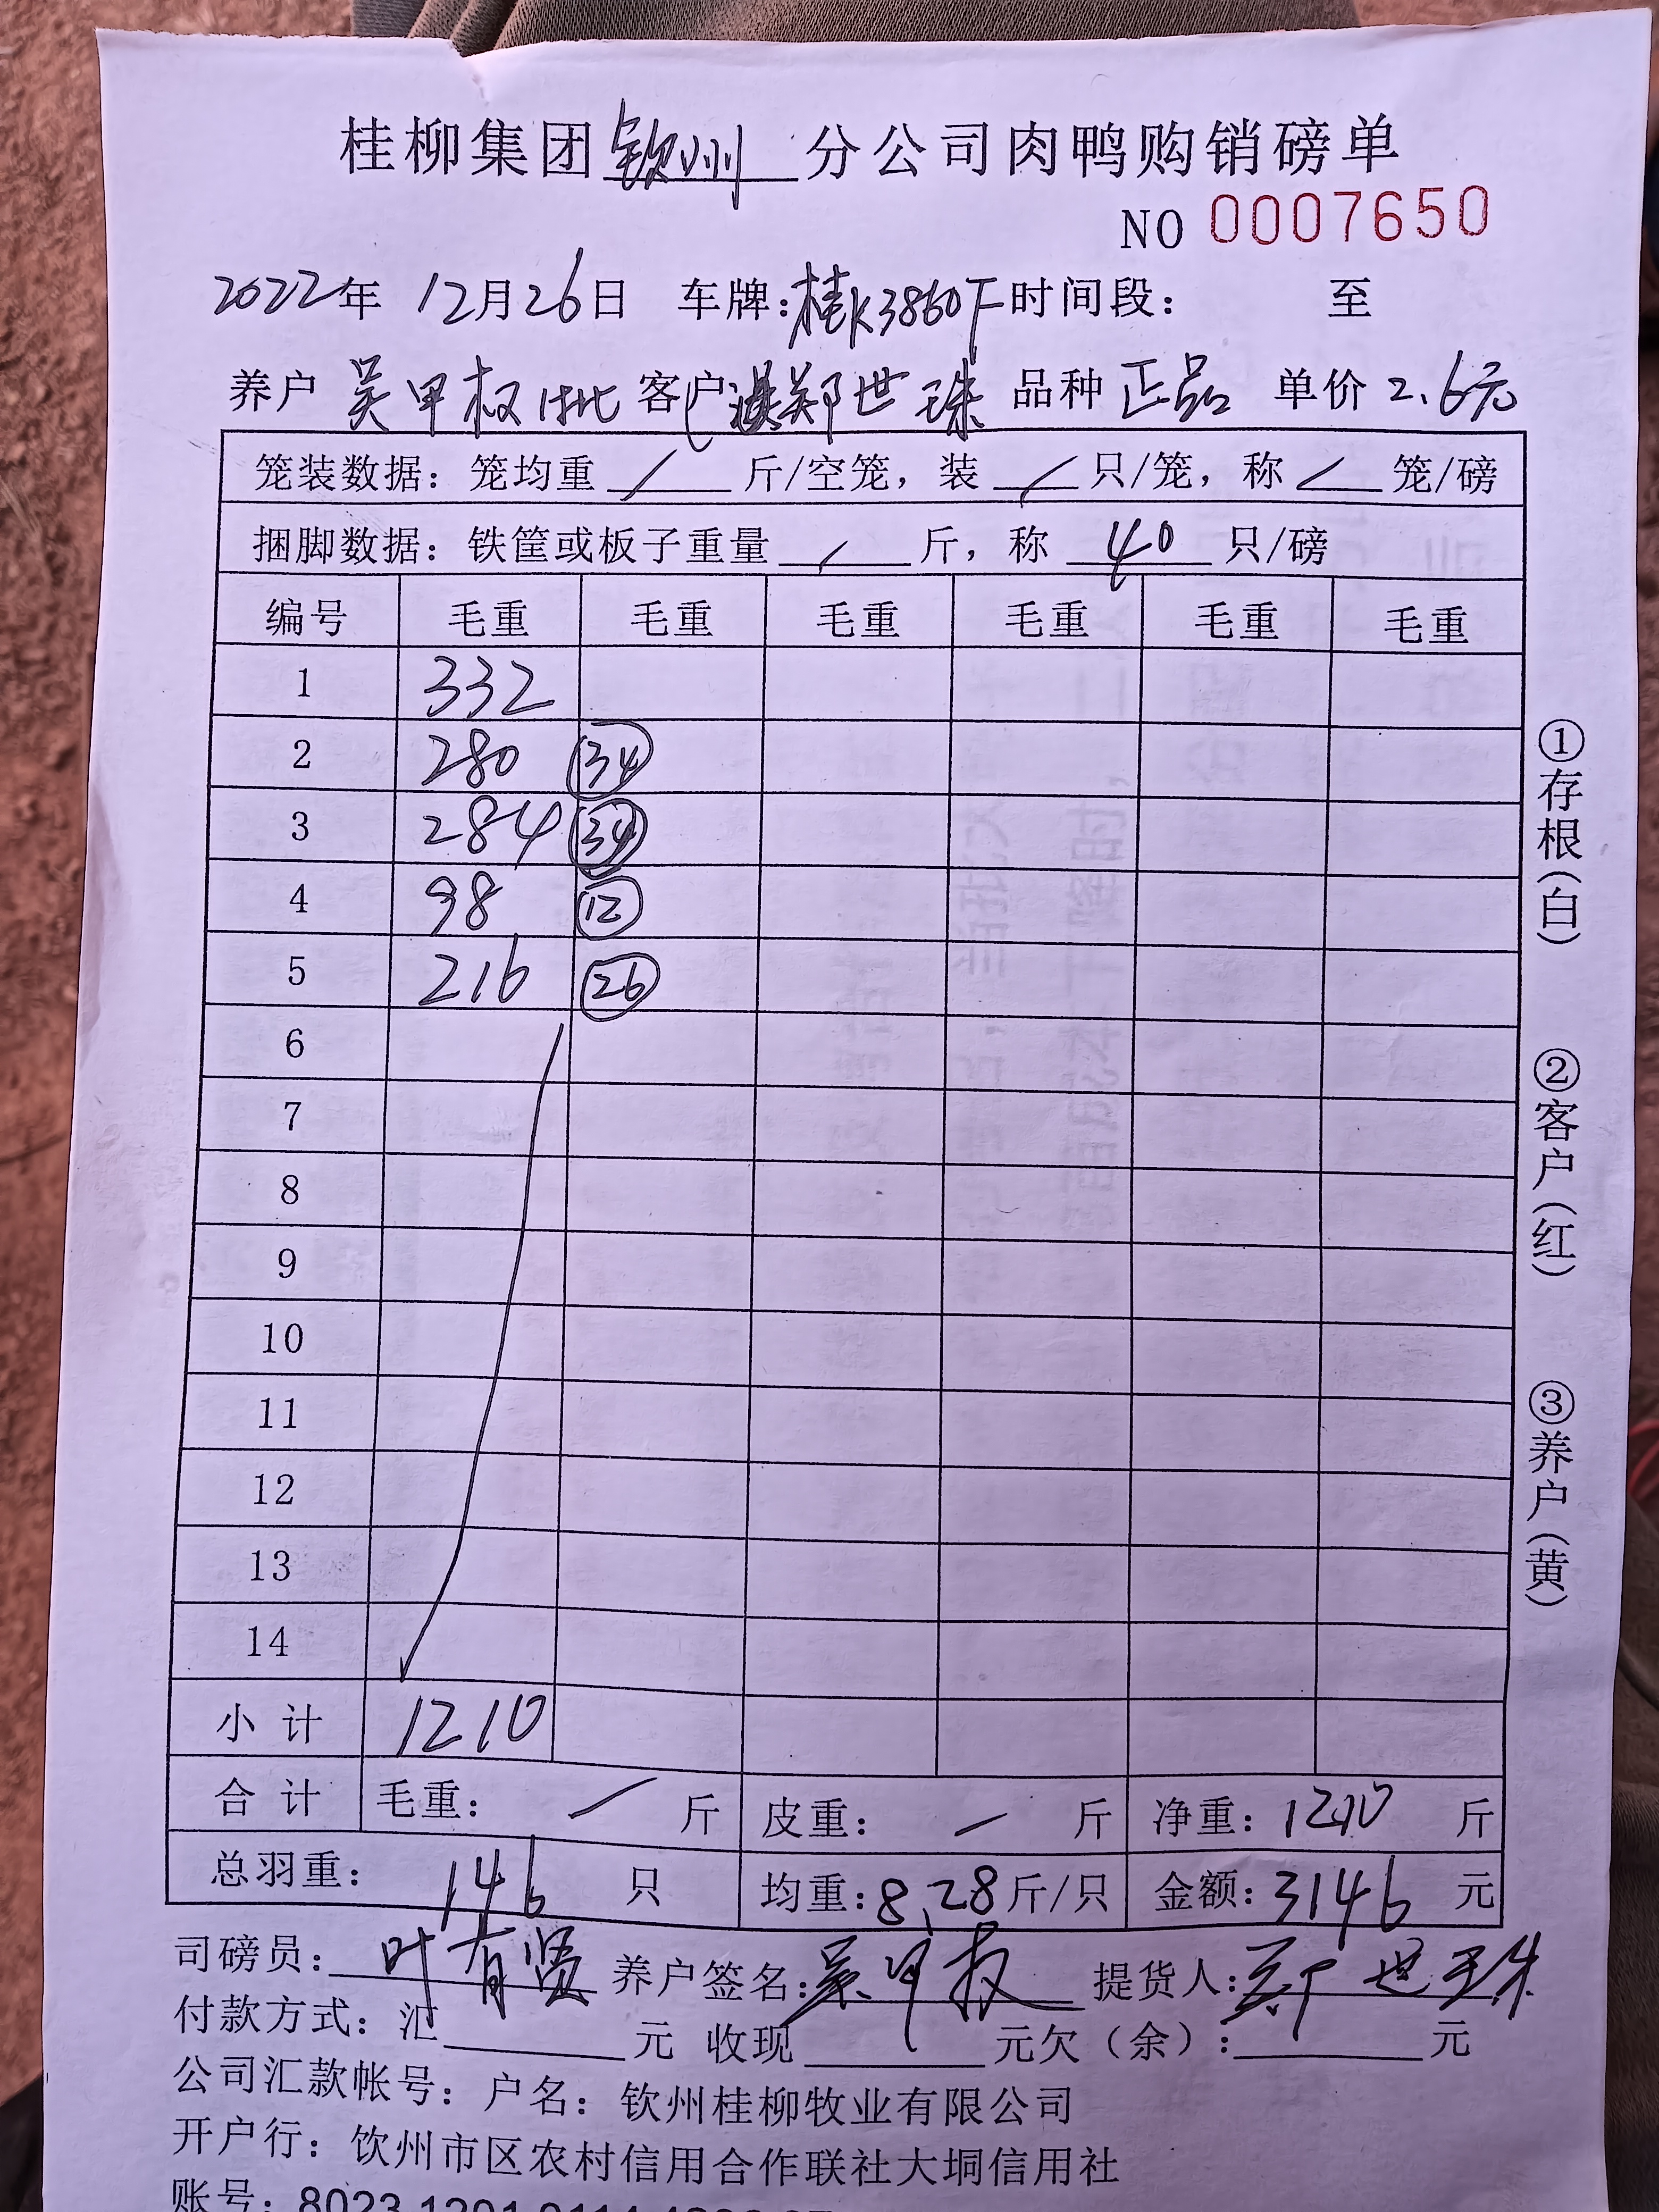 桂柳集团钦州分公司肉鸭购销磅单
NO 0007650
2022年 12月26日 车牌:桂K3860F时间段: 至
养户 吴甲权1批 客户 郑世珠 品种 正品 单价 2.6元
笼装数据: 笼均重 / 斤/空笼, 装 / 只/笼, 称 / 笼/磅
捆脚数据: 铁筐或板子重量 / 斤, 称 40 只/磅
编号 毛重 毛重 毛重 毛重 毛重 毛重
1 332
2 280 34
3 284 34
4 98 12
5 216 26
6
7
8
9
10
11
12
13
14
小计 1210
合计 毛重: / 斤 皮重: / 斤 净重: 1210 斤
总羽重: 146 只 均重: 8.28斤/只 金额: 3146 元
司磅员: 叶有贤 养户签名: 吴甲权 提货人: 郑世珠
付款方式: 汇 元 收现 元欠（余）: 元
公司汇款帐号: 户名: 钦州桂柳牧业有限公司
开户行: 钦州市区农村信用合作联社大垌信用社
账号: 8023 1201 0114
①存根(白)
②客户(红)
③养户(黄)